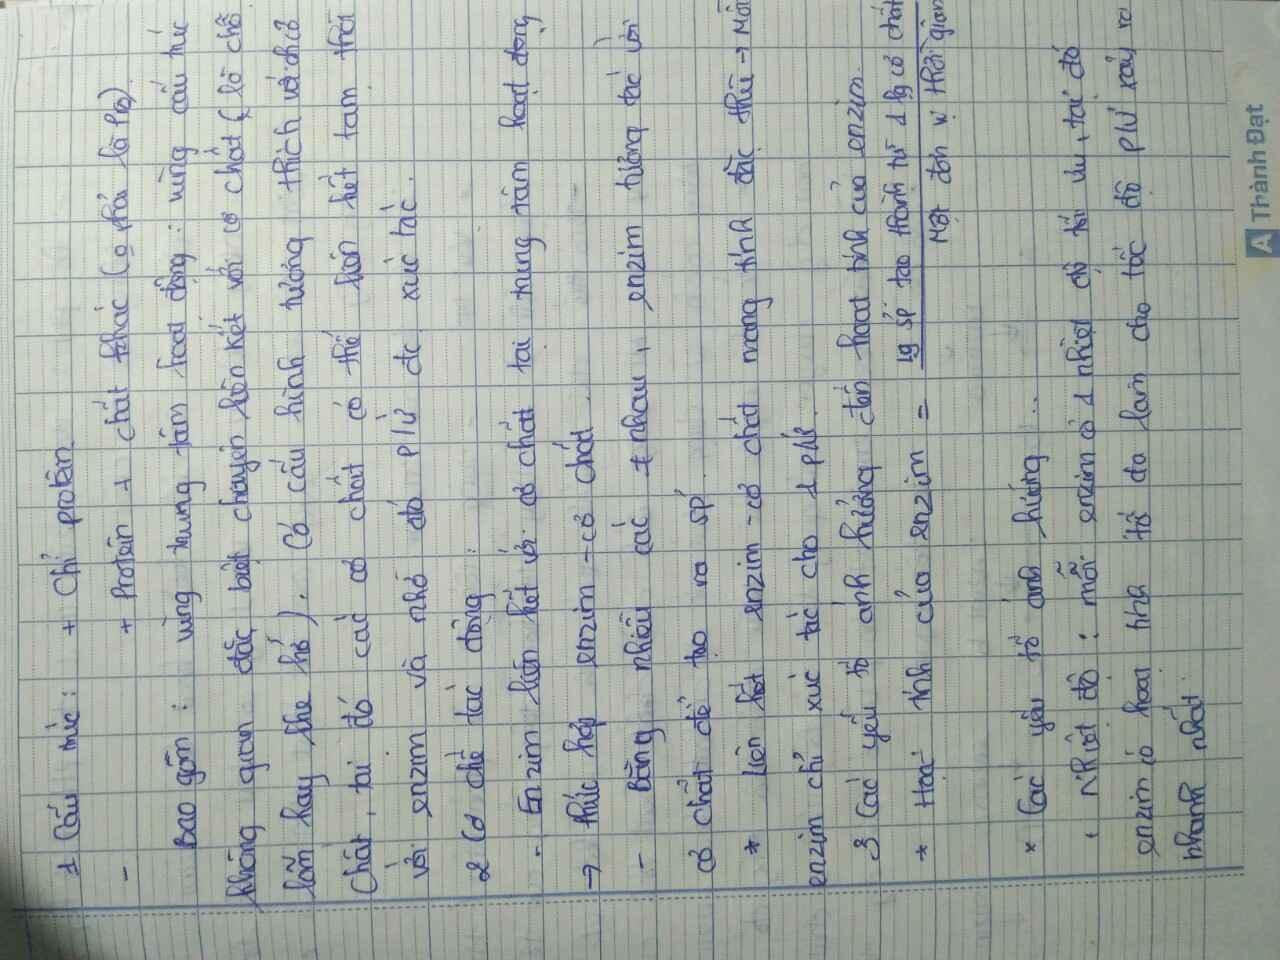 1 Cấu trúc: + Chỉ protêin
- + Protêin + chất khác (o phải là Pr)
Bao gồm: vùng trung tâm hoạt động: vùng cấu trúc
không gian đặc biệt chuyên liên kết với cơ chất (lõ chỗ
lõm hay khe hở). Có cấu hình tương thích với cơ
chất, tại đó các cơ chất có thể liên kết tạm thời
với enzim và nhờ đó pứ đc xúc tác.
2 Cơ chế tác động:
- Enzim liên kết với cơ chất tại trung tâm hoạt động
→ phức hợp enzim - cơ chất.
- Bằng nhiều cách ≠ nhau, enzim tương tác với
cơ chất để tạo ra sp.
* Liên kết enzim - cơ chất mang tính đặc thù → Mỗi
enzim chỉ xúc tác cho 1 pứ.
3 Các yếu tố ảnh hưởng đến hoạt tính của enzim.
* Hoạt tính của enzim = lg sp tạo thành từ 1 lg cơ chất
Một đơn vị thời gian
* Các yếu tố ảnh hưởng...
. Nhiệt độ: mỗi enzim ở 1 nhiệt độ tối ưu, tại đó
enzim có hoạt tính tối đa làm cho tốc độ pứ xảy ra
nhanh nhất.
A Thành Đạt